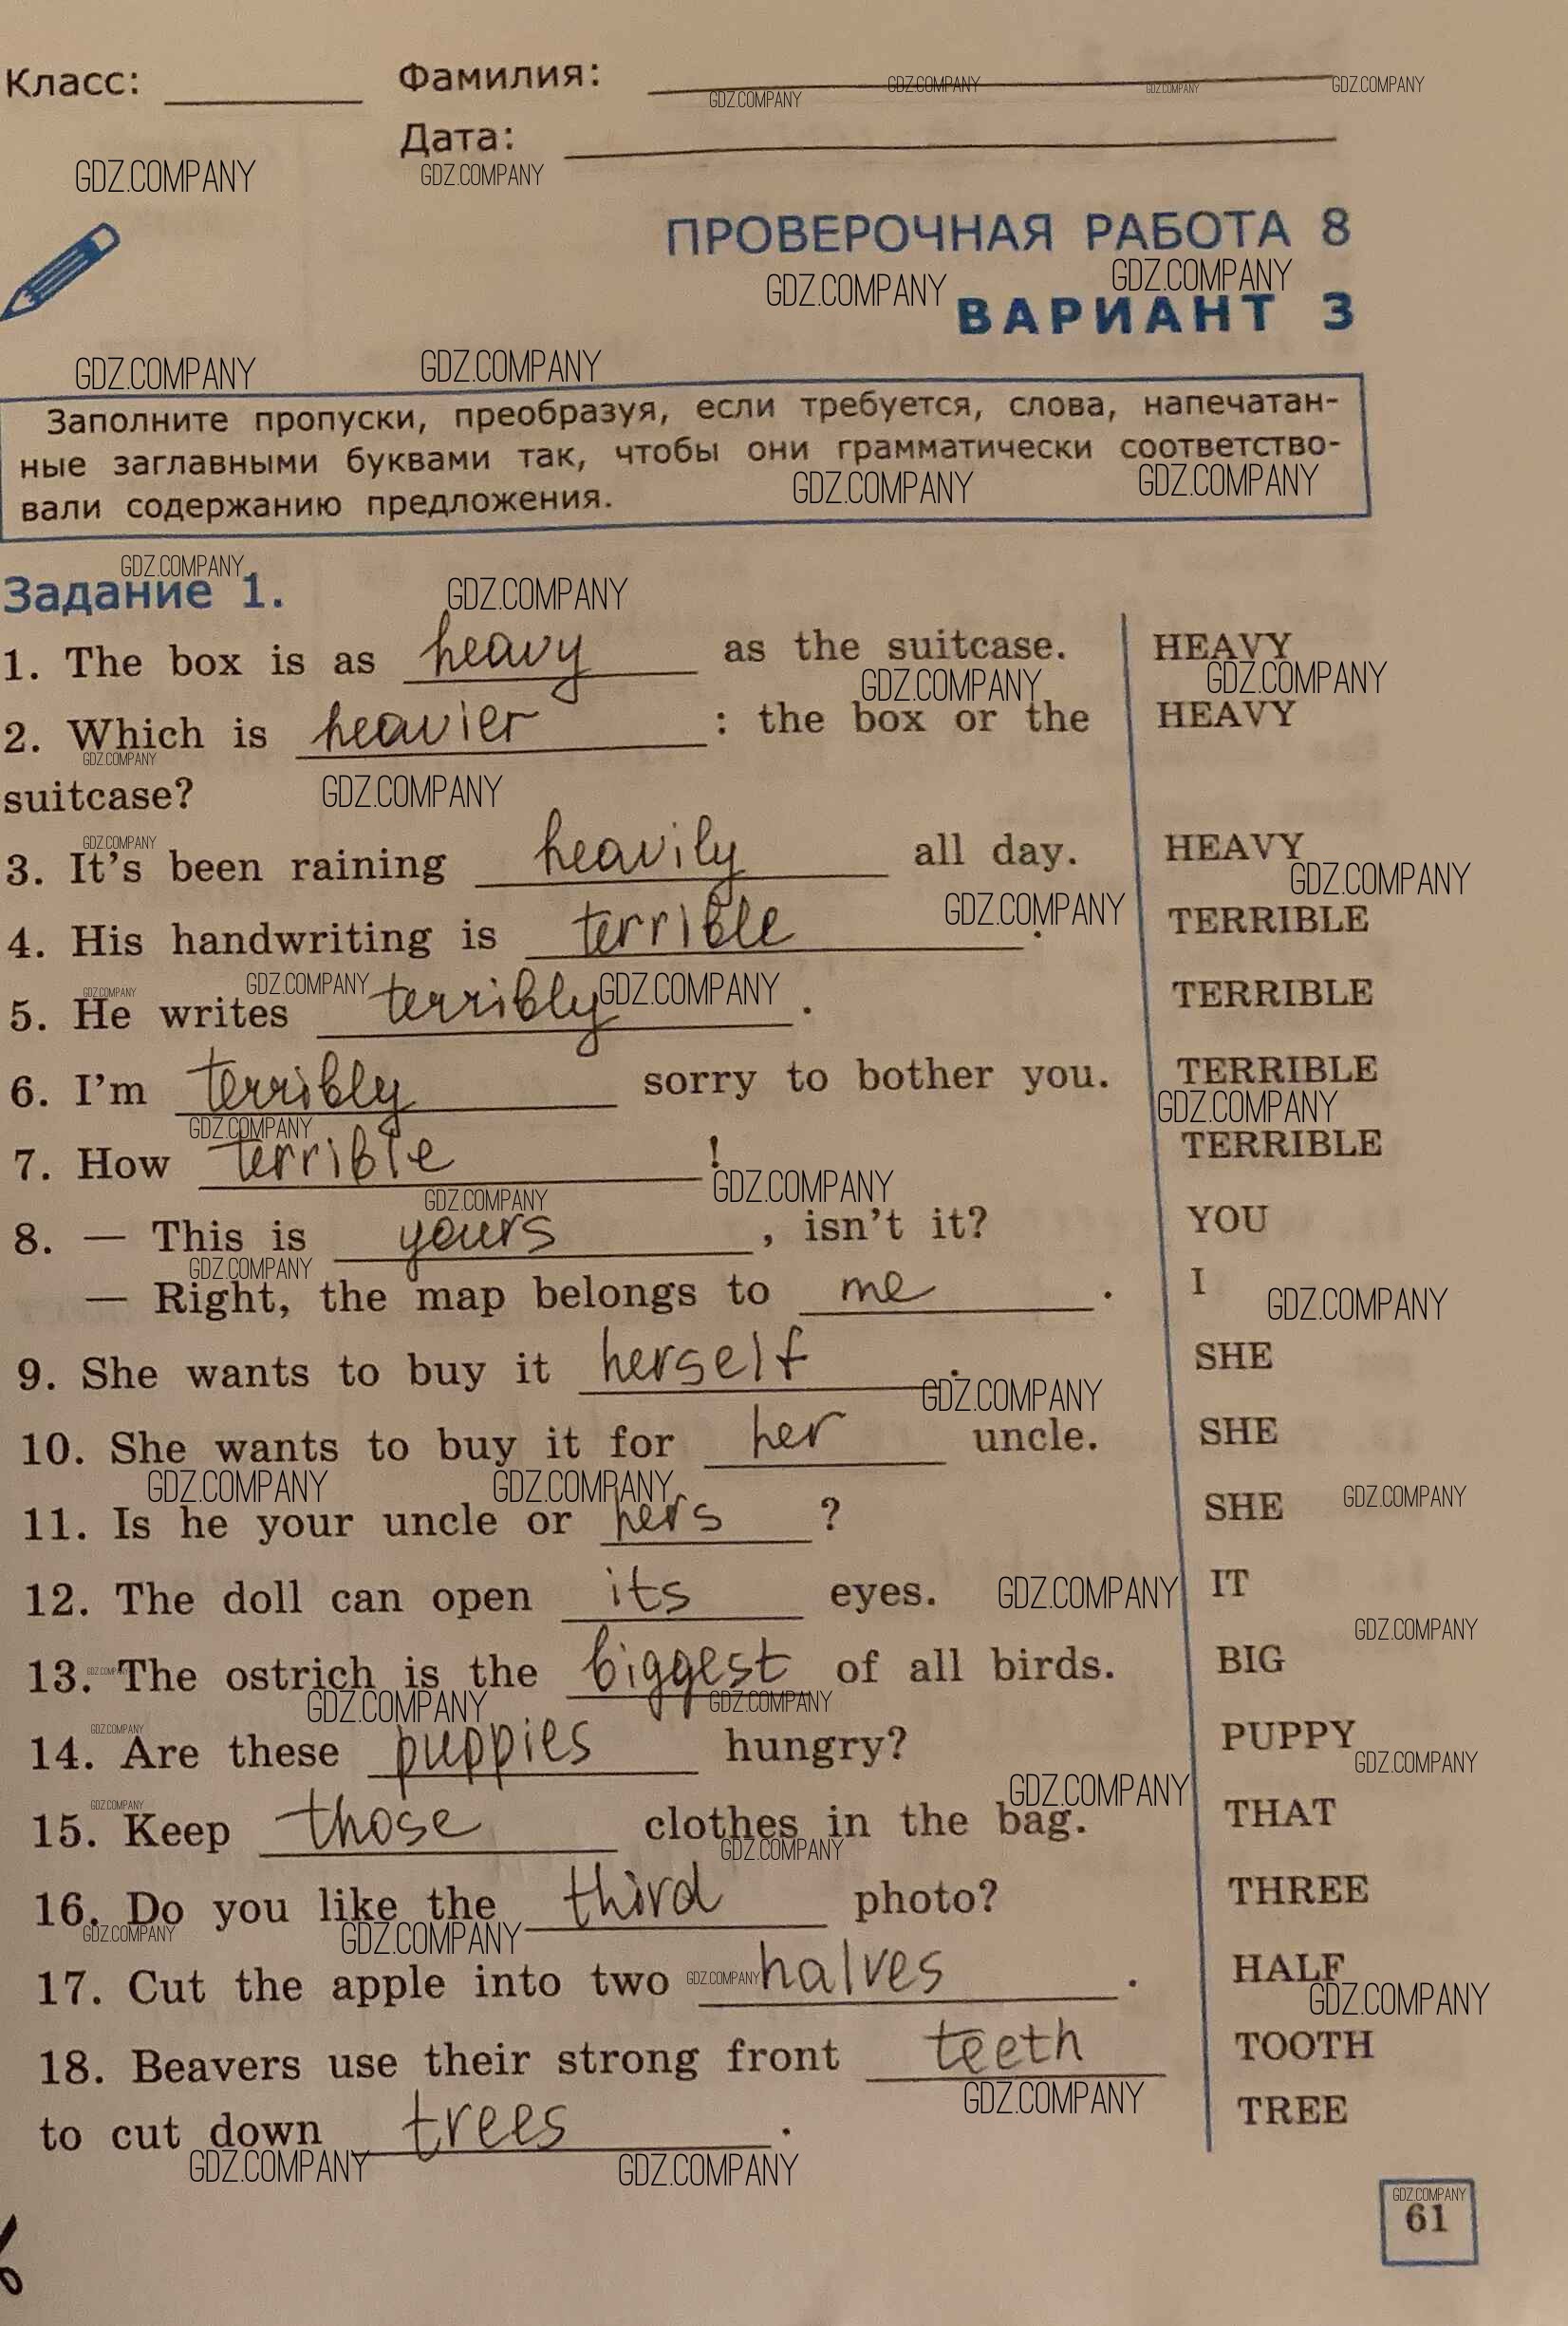 Класс: Фамилия:
Дата:
ПРОВЕРОЧНАЯ РАБОТА 8
ВАРИАНТ 3
Заполните пропуски, преобразуя, если требуется, слова, напечатан-
ные заглавными буквами так, чтобы они грамматически соответство-
вали содержанию предложения.
Задание 1.
1. The box is as heavy as the suitcase. HEAVY
2. Which is heavier : the box or the HEAVY
suitcase?
3. It's been raining heavily all day. HEAVY
4. His handwriting is terrible . TERRIBLE
5. He writes terribly . TERRIBLE
6. I'm terribly sorry to bother you. TERRIBLE
7. How terrible ! TERRIBLE
8. — This is yours , isn't it? YOU
— Right, the map belongs to me . I
9. She wants to buy it herself . SHE
10. She wants to buy it for her uncle. SHE
11. Is he your uncle or hers ? SHE
12. The doll can open its eyes. IT
13. The ostrich is the biggest of all birds. BIG
14. Are these puppies hungry? PUPPY
15. Keep those clothes in the bag. THAT
16. Do you like the third photo? THREE
17. Cut the apple into two halves . HALF
18. Beavers use their strong front teeth TOOTH
to cut down trees . TREE
GDZ.COMPANY
61